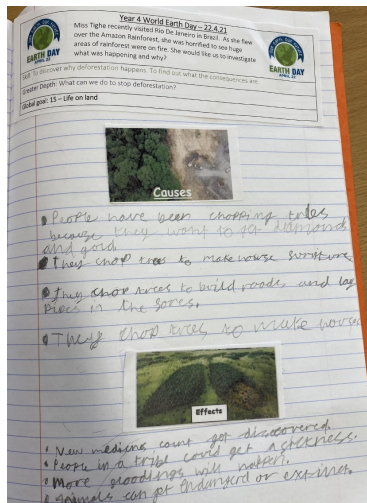 Year 4 World Earth Day – 22.4.21
Miss Tighe recently visited Rio De Janeiro in Brazil. As she flew
over the Amazon Rainforest, she was horrified to see huge
areas of rainforest were on fire. She would like us to investigate
what was happening and why?
EARTH DAY
APRIL 22
EARTH DAY
APRIL 22
Skill: To discover why deforestation happens. To find out what the consequences are.
Greater Depth: What can we do to stop deforestation?
Global goal: 15 – Life on land
Causes
• People have been chopping trees
because they want to get diamonds
and gold.
• They chop trees to make house
• They chop trees to build roads and lay
in the
• They chop trees to make
Effects
• New medicins get discovered.
• People in a tribe could get a
• More will
• Animals can get or